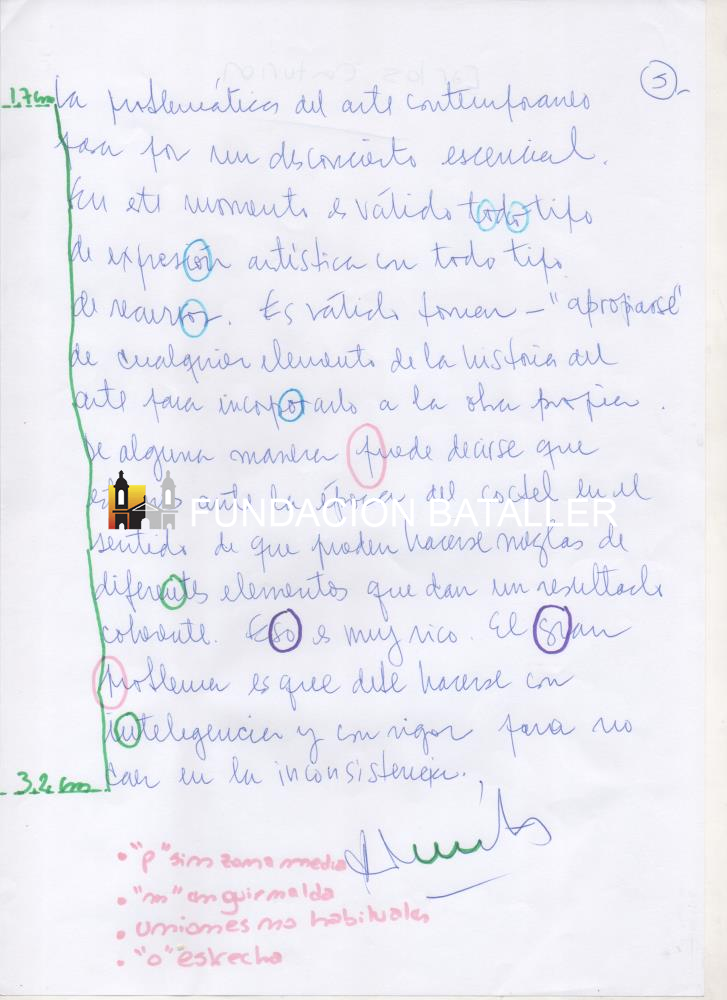 5
1.7 cm
La problemática del arte contemporaneo
pasa por un desconcierto escencial.
En este momento es válido todo tipo
de expresión artística con todo tipo
de recursos. Es válido tomar - "apropiarse"
de cualquier elemento de la historia del
arte para incorporarlo a la obra propia.
De alguna manera puede decirse que
ante la época del coctel en el
FUNDACION BATALLER
sentido de que pueden hacerse mezclas de
diferentes elementos que dan un resultado
coherente. Eso es muy rico. El gran
problema es que debe hacerse con
inteligencia y con rigor para no
caer en la inconsistencia.
3.2 cm
• "p" sin zona media
• "n" en guirnalda
• Uniones no habituales
• "o" estrecha